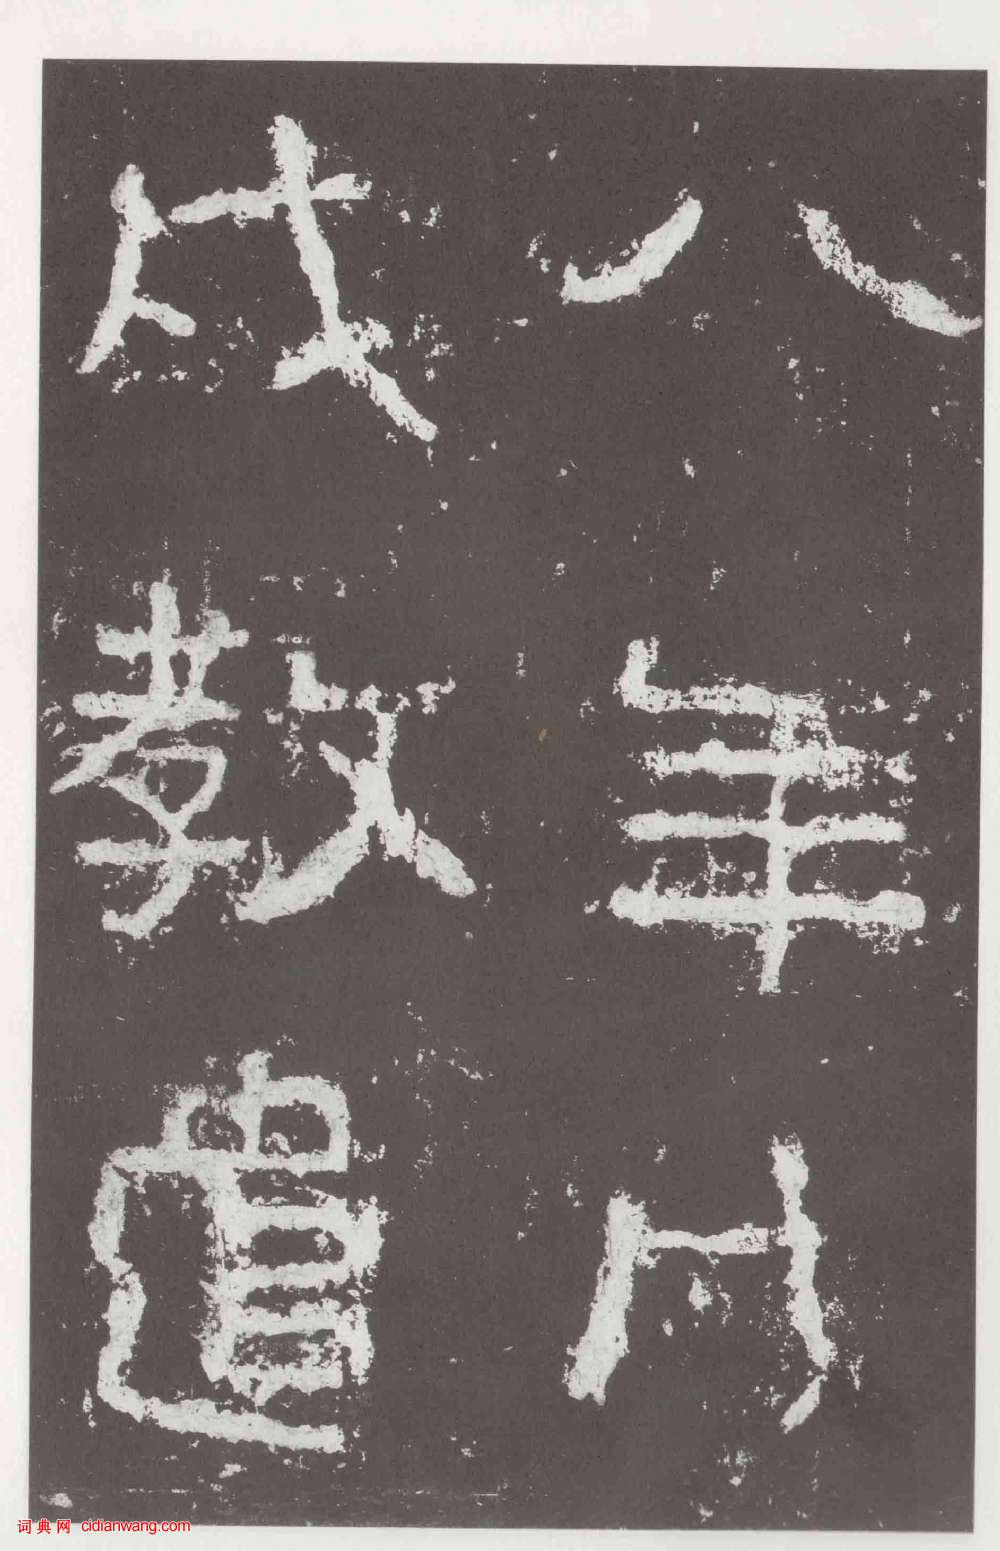 八年戊
戌教遣
词典网 cidianwang.com